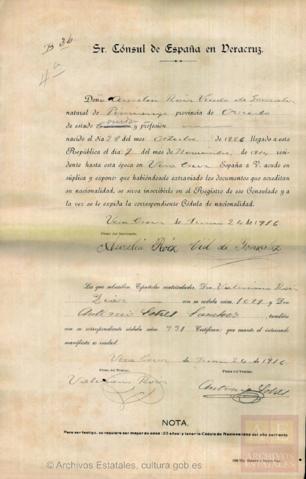 B 36
4ª
Sr. Cónsul de España en Veracruz.
Don Aurelia Roiz Viuda de
natural de provincia de Oviedo
de estado y profesión
nacido el día 29 del mes Octubre 1886 llegado a esta
República el día 7 del mes de Noviembre
sidente hasta esta época en Vera Cruz España a V. acude en
súplica y expone: que habiéndose extraviado los documentos que acreditan
su nacionalidad, se sirva inscribirla en el Registro de ese Consulado y a
la vez se le expida la correspondiente Cédula de nacionalidad.
Vera Cruz 24 de 1916
Aurelia Róiz Vid de
Los que subscriben Españoles matriculados, Don Valeriano Roiz
con su cédula núm. y Don
Antonio Sobes Sanchez también
con su correspondiente cédula núm. 731 Certifican: que cuanto el interesado
manifiesta es verdad.
Vera Cruz 24 de 1916
Valeriano Roiz
Antonio Sobes
NOTA.
Para ser testigo, se requiere ser mayor de edad (23 años) y tener la Cédula de Nacionalidad del año corriente
ARCHIVOS
ESTATALES
© Archivos Estatales, cultura.gob.es